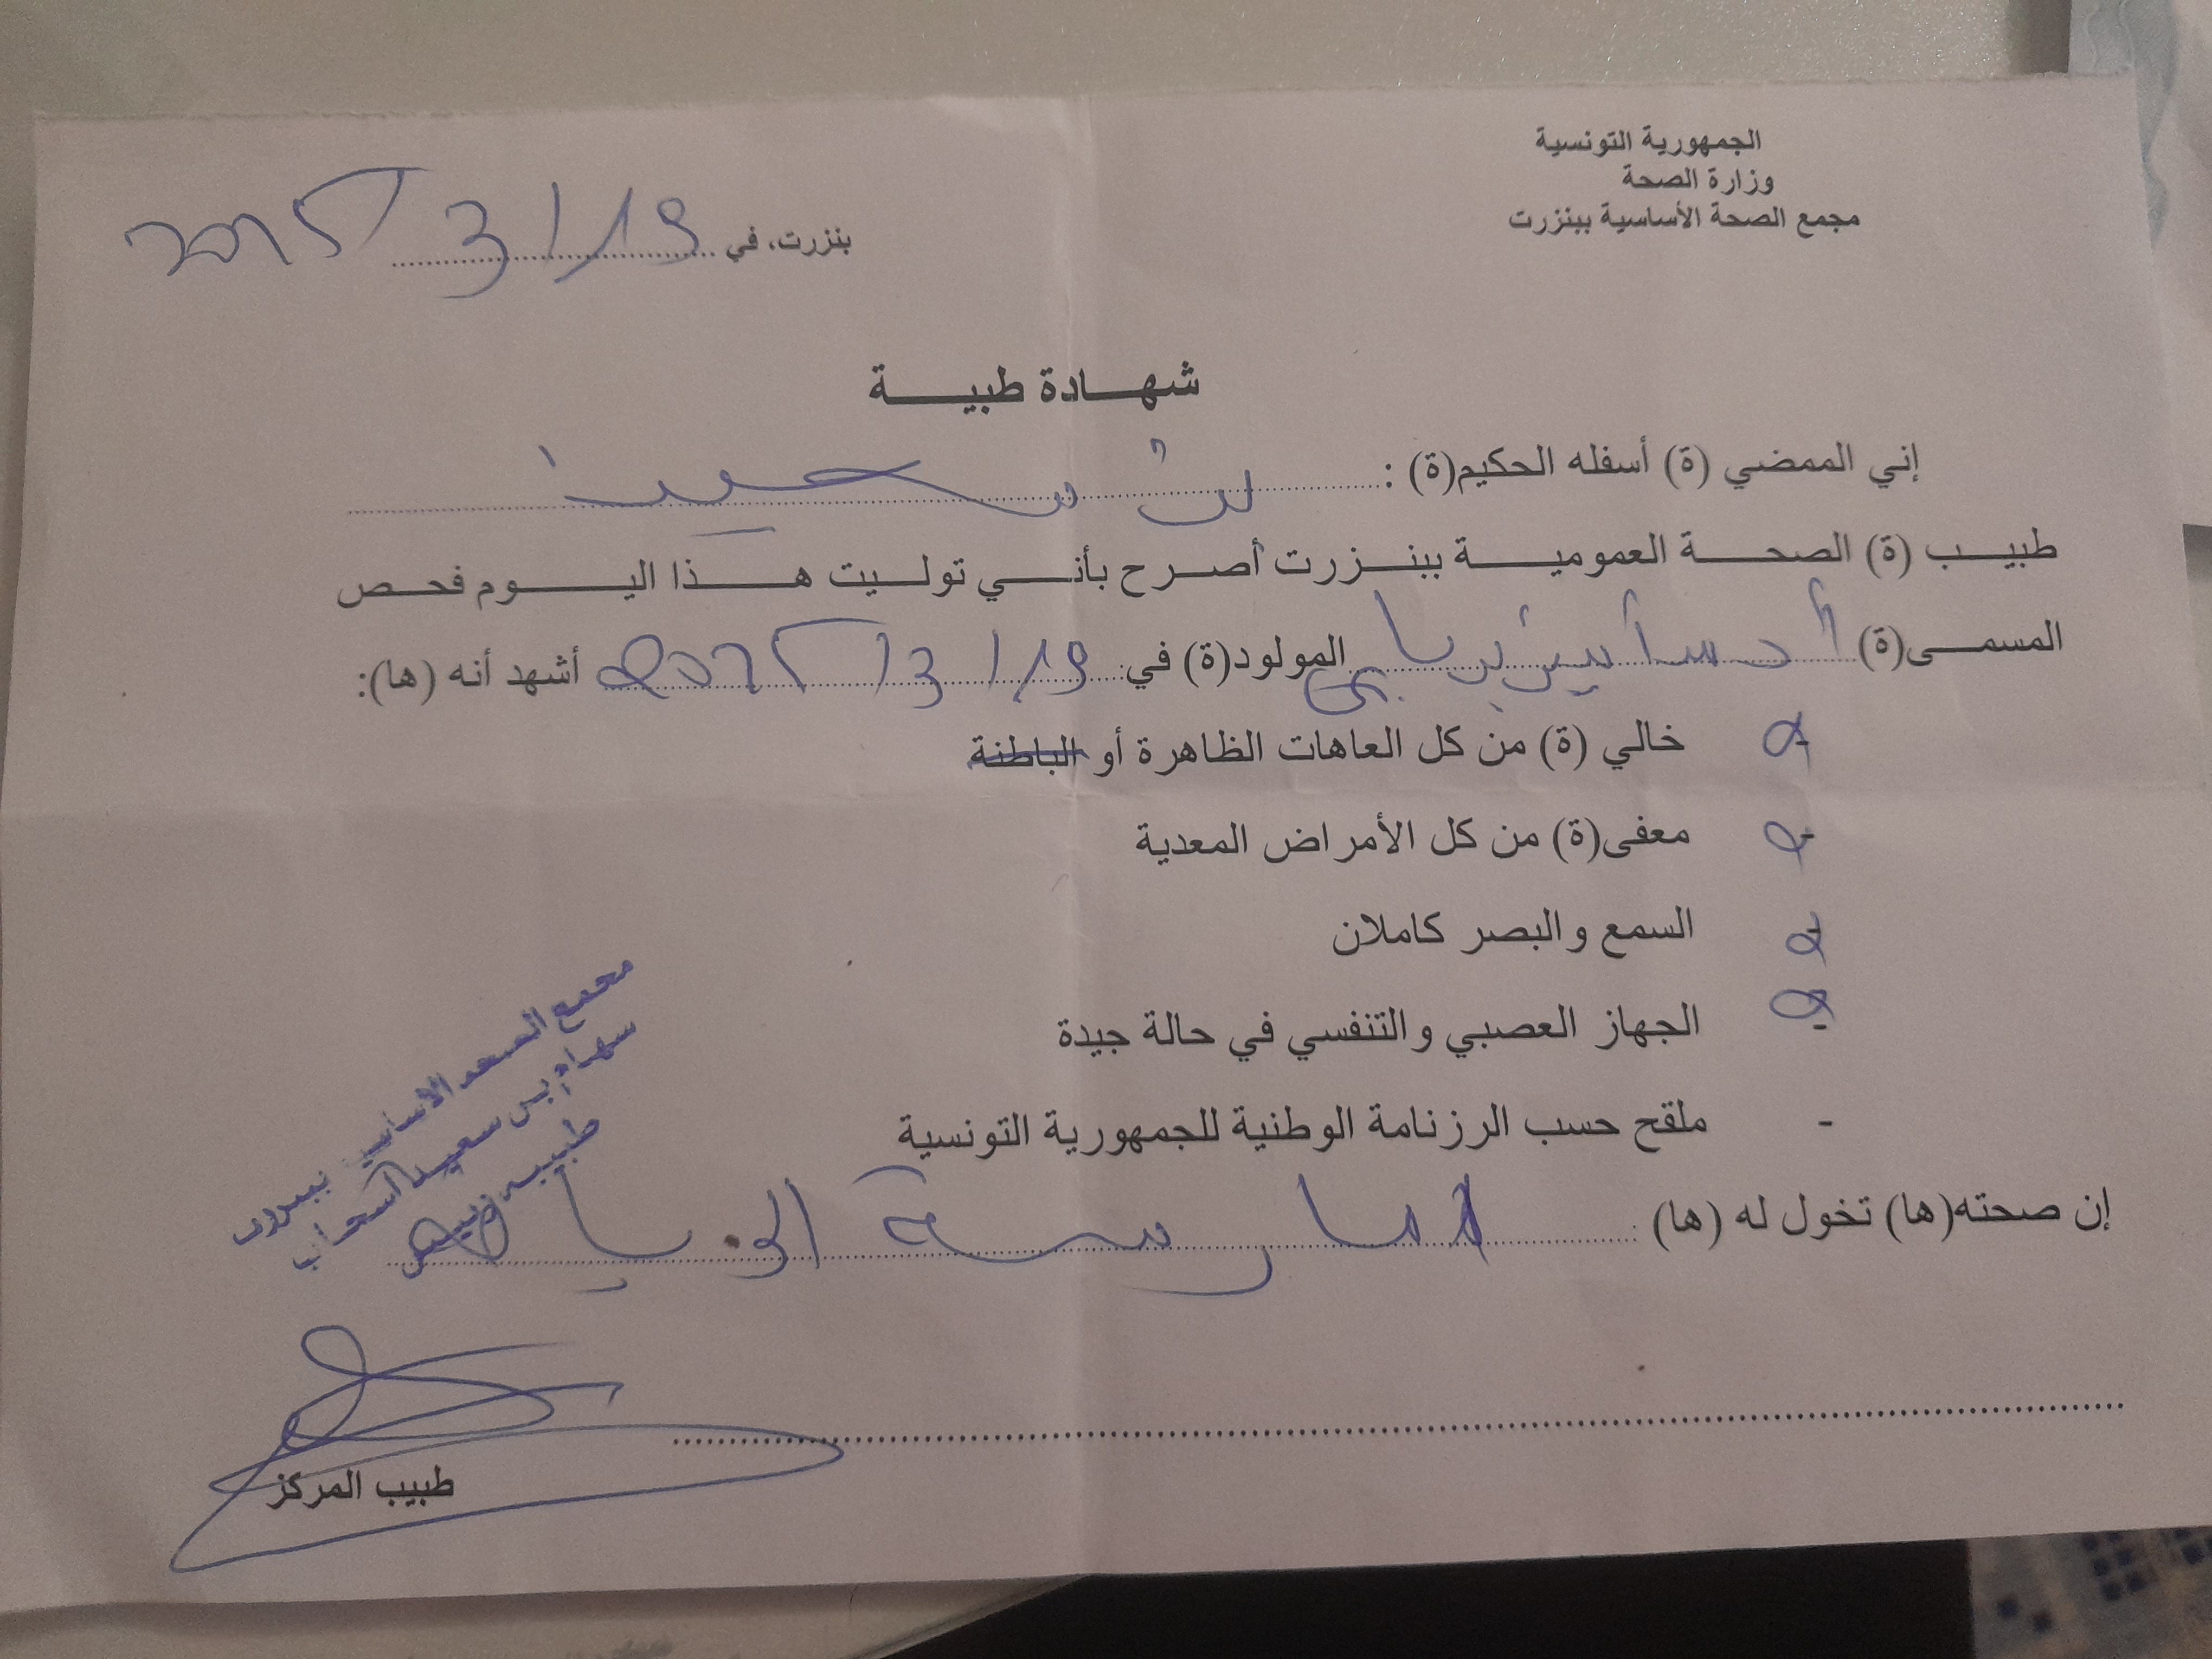 الجمهورية التونسية
وزارة الصحة
مجمع الصحة الأساسية ببنزرت
بنزرت، في 19/3/2025
شهادة طبية
إني الممضي (ة) أسفله الحكيم(ة) : بن سعيد
طبيب (ة) الصحة العمومية ببنزرت أصرح بأني توليت هذا اليوم فحص
المسمى(ة) المولود(ة) في: 19/3/2025 أشهد أنه (ها):
خالي (ة) من كل العاهات الظاهرة أو الباطنة
- معفى(ة) من كل الأمراض المعدية
- السمع والبصر كاملان
- الجهاز العصبي والتنفسي في حالة جيدة
- ملقح حسب الرزنامة الوطنية للجمهورية التونسية
إن صحته(ها) تخول له (ها) : ممارسة الرياضة
مجمع الصحة الاساسية ببنزرت
سهام بن سعيد السحاب
طبيب رئيس
طبيب المركز